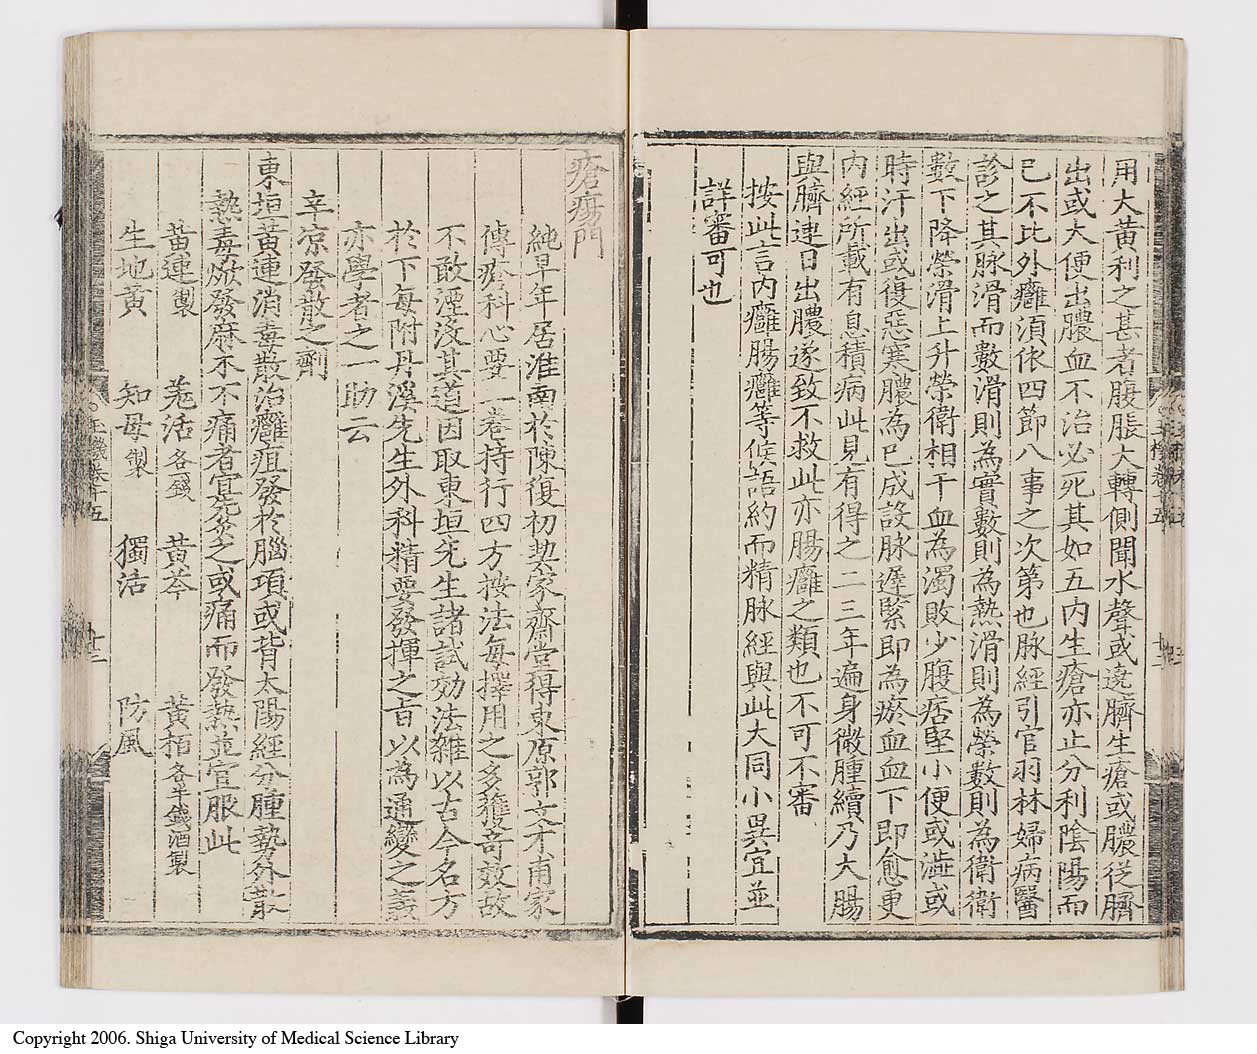 用大黃利之甚者腹脹大轉側聞水聲或遶臍生瘡或膿從臍
出或大便出膿血不治必死其如五內生瘡亦止分利陰陽而
已不比外癰須依四節八事之次第也脉經引官羽林婦病醫
診之其脉滑而數滑則為實數則為熱滑則為榮數則為衛衛
數下降榮滑上升榮衛相干血為濁敗少腹痞堅小便或澁或
時汗出或復惡寒膿為已成設脉遲緊即為瘀血血下即愈更
內經所載有息積病此見有得之二三年遍身微腫續乃大腸
與臍連日出膿遂致不救此亦腸癰之類也不可不審
按此言內癰腸癰等候語約而精脉經與此大同小異宜並
詳審可也
瘡瘍門
純早年居淮南於陳復初塾家齋堂得東原郭文才甫家
傳瘡科心要一卷持行四方按法每擇用之多獲奇效故
不敢湮沒其道因取東垣先生諸試効法雜以古今名方
於下每附丹溪先生外科精要發揮之旨以為通變之義
亦學者之一助云
辛凉發散之劑
東垣黃連消毒散治癰疽發於腦項或背太陽經分腫勢外散
熱毒焮發麻木不痛者宜先灸之或痛而發熱並宜服此
黃連製 羗活各錢 黃芩 黃栢各半錢酒製
生地黃 知母製 獨活 防風
玉機卷十五
十三
Copyright 2006. Shiga University of Medical Science Library